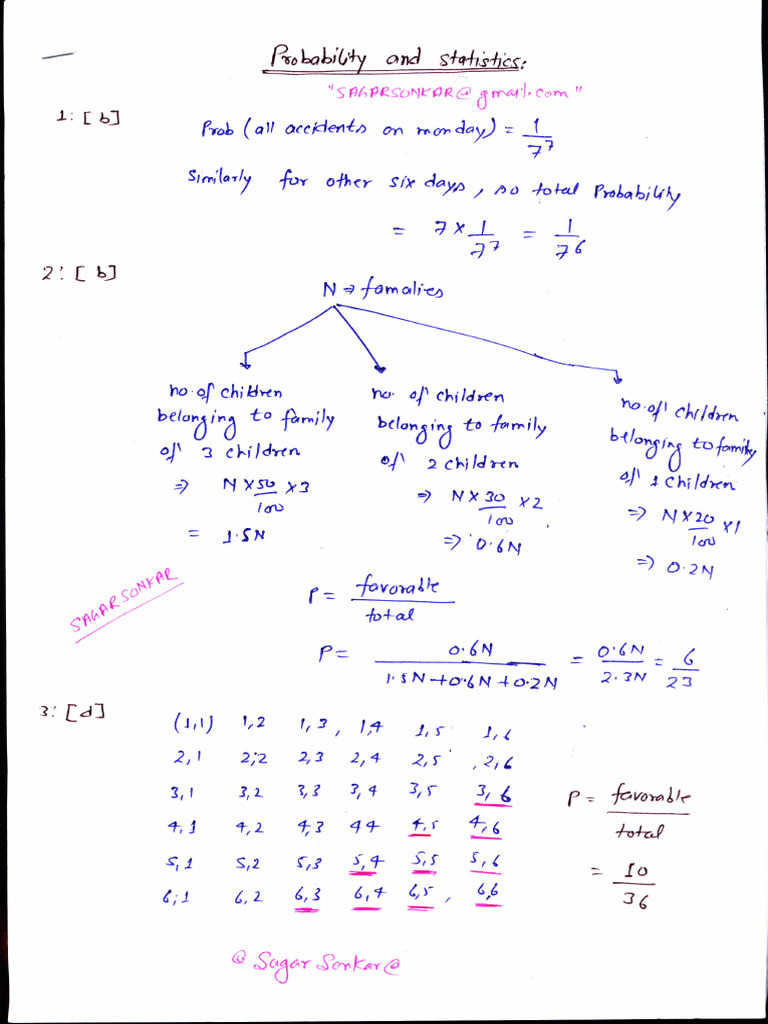 Probability and statistics:
"SAGARSONKAR@gmail.com"
1: [b]
Prob (all accidents on monday) = 1/7^7
Similarly for other six days, so total Probability
= 7 × 1/7^7 = 1/7^6
2: [b]
N → famalies
no. of children belonging to family of 3 children
⇒ N × 50/100 × 3
= 1.5N
no. of children belonging to family of 2 children
⇒ N × 30/100 × 2
⇒ 0.6N
no. of children belonging to family of 1 children
⇒ N × 20/100 × 1
⇒ 0.2N
SAGARSONKAR
P = favorable/total
P = 0.6N/1.5N+0.6N+0.2N = 0.6N/2.3N = 6/23
3: [d]
(1,1) 1,2 1,3, 1,4 1,5 1,6
2,1 2;2 2,3 2,4 2,5 ,2,6
3,1 3,2 3,3 3,4 3,5 3,6
4,1 4,2 4,3 44 4,5 4,6
5,1 5,2 5,3 5,4 5,5 5,6
6;1 6,2 6,3 6,4 6,5, 6,6
P = favorable/total
= 10/36
@ Sagar Sonkar@